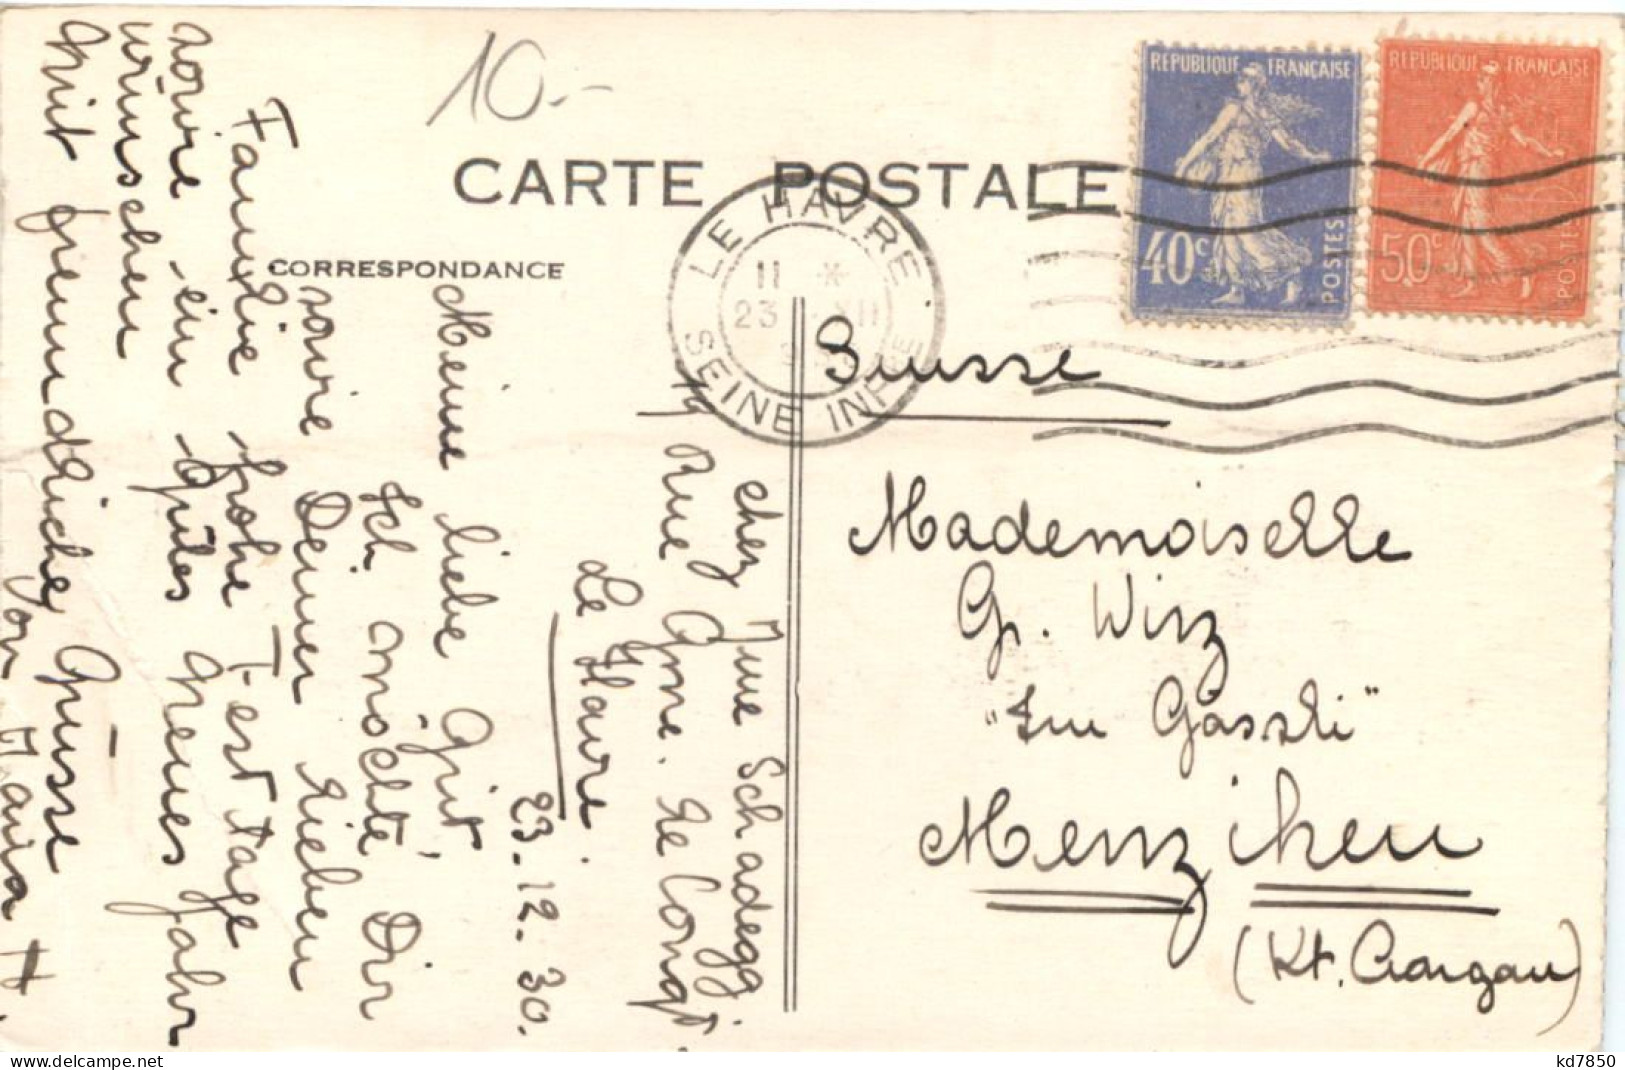 10.-
CARTE POSTALE
CORRESPONDANCE
REPUBLIQUE FRANÇAISE
40c
POSTES
REPUBLIQUE FRANÇAISE
50c
POSTES
LE HAVRE
11 *
23 XII
SEINE INF
chez Mme Schadegg
Rue Gme. le Conqt
Le Havre
23. 12. 30.
Meine liebe Grit
Ich möchte Dir
sowie Deiner lieben
Familie frohe Festtage
sowie ein gutes Neues Jahr
wünschen
Mit freundliche Grüsse
von Maria H.
Suisse
Mademoiselle
G. Wirz
"Im Gässli"
Menziken
(Kt. Aargau)
kd7850